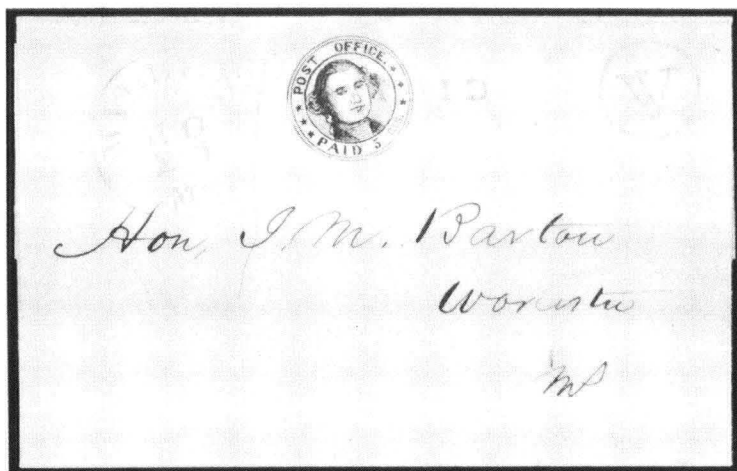 POST OFFICE.
PAID 5
Hon, I. M. Barton
Worcester
Ms